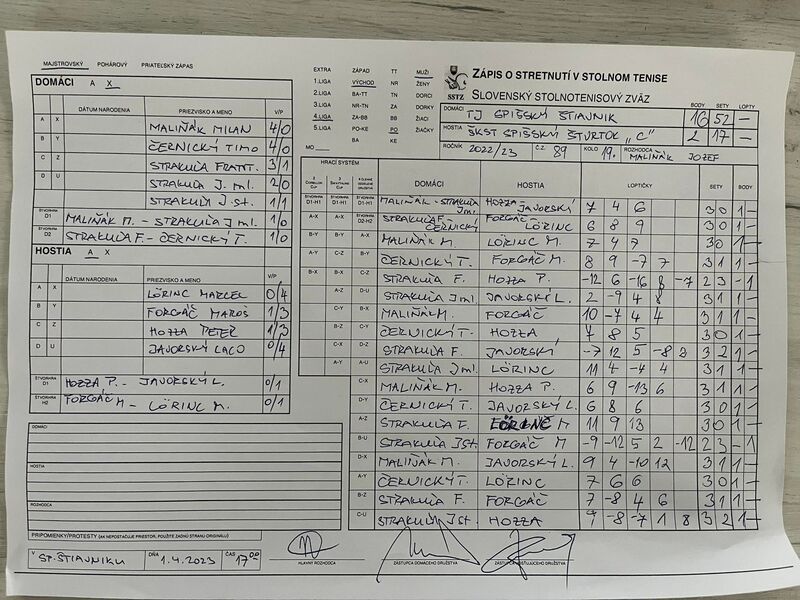 MAJSTROVSKÝ POHÁROVÝ PRIATEĽSKÝ ZÁPAS
DOMÁCI A X
DÁTUM NARODENIA PRIEZVISKO A MENO V/P
A X MALIŇÁK MILAN 4/0
B Y ČERNICKÝ TIMO 4/0
C Z STRAKUĽA FRANT. 3/1
STRAKUĽA J. ml. 2/0
STRAKUĽA J. st. 1/1
ŠTVORHRA D1 MALIŇÁK M. - STRAKUĽA J ml. 1/0
ŠTVORHRA D2 STRAKUĽA F. - ČERNICKÝ T. 1/0
HOSTIA A X
DÁTUM NARODENIA PRIEZVISKO A MENO V/P
A X LÖRINC MARCEL 0/4
B Y FORGÁČ MAROŠ 1/3
C Z HOZZA PETER 1/3
D U JAVORSKÝ LACO 0/4
ŠTVORHRA D1 HOZZA P. - JAVORSKÝ L. 0/1
ŠTVORHRA H2 FORGÁČ M - LÖRINC M. 0/1
DOMÁCI
HOSTIA
ROZHODCA
PRIPOMIENKY/PROTESTY (AK NEPOSTAČUJE PRIESTOR, POUŽITE ZADNÚ STRANU ORIGINÁLU)
V SP. ŠTIAVNIKU DŇA 1.4.2023 ČAS 17 00
HLAVNÝ ROZHODCA
ZÁSTUPCA DOMÁCEHO DRUŽSTVA
ZÁSTUPCA HOSŤUJÚCEHO DRUŽSTVA
EXTRA ZÁPAD TT MUŽI
1.LIGA VÝCHOD NR ŽENY
2.LIGA BA-TT TN DORCI
3.LIGA NR-TN ZA DORKY
4.LIGA ZA-BB BB ŽIACI
5.LIGA PO-KE PO ŽIAČKY
MO BA KE
SSTZ
ZÁPIS O STRETNUTÍ V STOLNOM TENISE
SLOVENSKÝ STOLNOTENISOVÝ ZVÄZ
BODY SETY LOPTY
DOMÁCI TJ SPIŠSKÝ ŠTIAVNIK 16 52 -
HOSTIA ŠKST SPIŠSKÝ ŠTVRTOK "C" 2 17 -
ROČNÍK 2022/23 Č.Z. 89 KOLO 19. ROZHODCA MALIŇÁK JOZEF
HRACÍ SYSTÉM
DOMÁCI HOSTIA LOPTIČKY SETY BODY
ŠTVORHRA D1-H1 ŠTVORHRA D1-H1 ŠTVORHRA D1-H1 MALIŇÁK - STRAKUĽA J ml. HOZZA JAVORSKÝ 7 4 6 3 0 1 -
A-X A-X ŠTVORHRA D2-H2 STRAKUĽA F. - ČERNICKÝ FORGÁČ - LÖRINC 6 8 9 3 0 1 -
B-Y B-Y A-X MALIŇÁK M. LÖRINC M. 7 4 7 3 0 1 -
A-Y C-Z B-Y ČERNICKÝ T. FORGÁČ M. 8 9 -7 7 3 1 1 -
B-X B-X C-Z STRAKUĽA F. HOZZA P. -12 6 -16 8 -7 2 3 - 1
A-Z D-U STRAKUĽA J ml. JAVORSKÝ L. 2 -9 4 8 3 1 1 -
C-Y B-X MALIŇÁK M. FORGÁČ 10 -7 4 4 3 1 1 -
B-Z C-Y ČERNICKÝ T. HOZZA 7 8 5 3 0 1 -
C-X D-Z STRAKUĽA F. JAVORSKÝ -7 12 5 -8 3 3 2 1 -
A-Y A-U STRAKUĽA J ml. LÖRINC 11 4 -4 4 3 1 1 -
C-X MALIŇÁK M. HOZZA P. 6 9 -13 6 3 1 1 -
D-Y ČERNICKÝ T. JAVORSKÝ L. 6 8 6 3 0 1 -
A-Z STRAKUĽA F. LÖRINC M 11 9 13 3 0 1 -
B-U STRAKUĽA J st. FORGÁČ M -9 -12 5 2 -12 2 3 - 1
D-X MALIŇÁK M. JAVORSKÝ L. 9 4 -10 12 3 1 1 -
A-Y ČERNICKÝ T. LÖRINC 7 6 6 3 0 1 -
B-Z STRAKUĽA F. FORGÁČ 7 -8 4 6 3 1 1 -
C-U STRAKUĽA J st. HOZZA 9 -8 -7 1 8 3 2 1 -